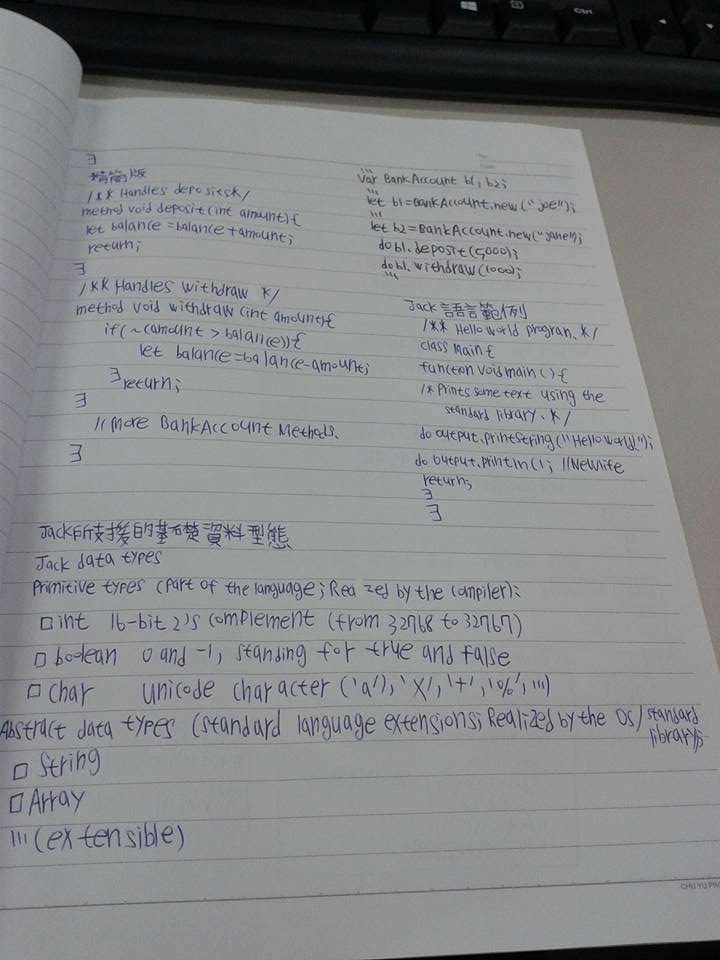 }
精簡版
/** Handles deposits*/
method void deposit(int amount){
let balance=balance+amount;
return;
}
/** Handles withdraw */
method void withdraw(int amount){
if(~(amount > balance)){
let balance=balance-amount;
}return;
}
//more BankAccount Methods.
}
...
Var BankAccount b1, b2;
...
let b1=BankAccount.new("joe");
...
let b2=BankAccount.new("jane");
do b1.deposit(5,000);
do b1.withdraw(1000);
...
Jack語言範例
/** Hello world program. */
class Main{
function void main(){
/* Prints some text using the
standard library. */
do output.printString("Hello world!");
do output.println(); //Newlife
return;
}
}
Jack所支援的基礎資料型態
Jack data types
Primitive types (Part of the language; Rea zed by the compiler):
□int 16-bit 2's complement (from 32768 to 32767)
□ boolean 0 and -1, standing for true and false
□ char unicode character ('a','x','+','%',...)
Abstract data types (standard language extensions; Realized by the OS/standard
library);
□ String
□ Array
...(extensible)
CHU YU PR
Ctrl